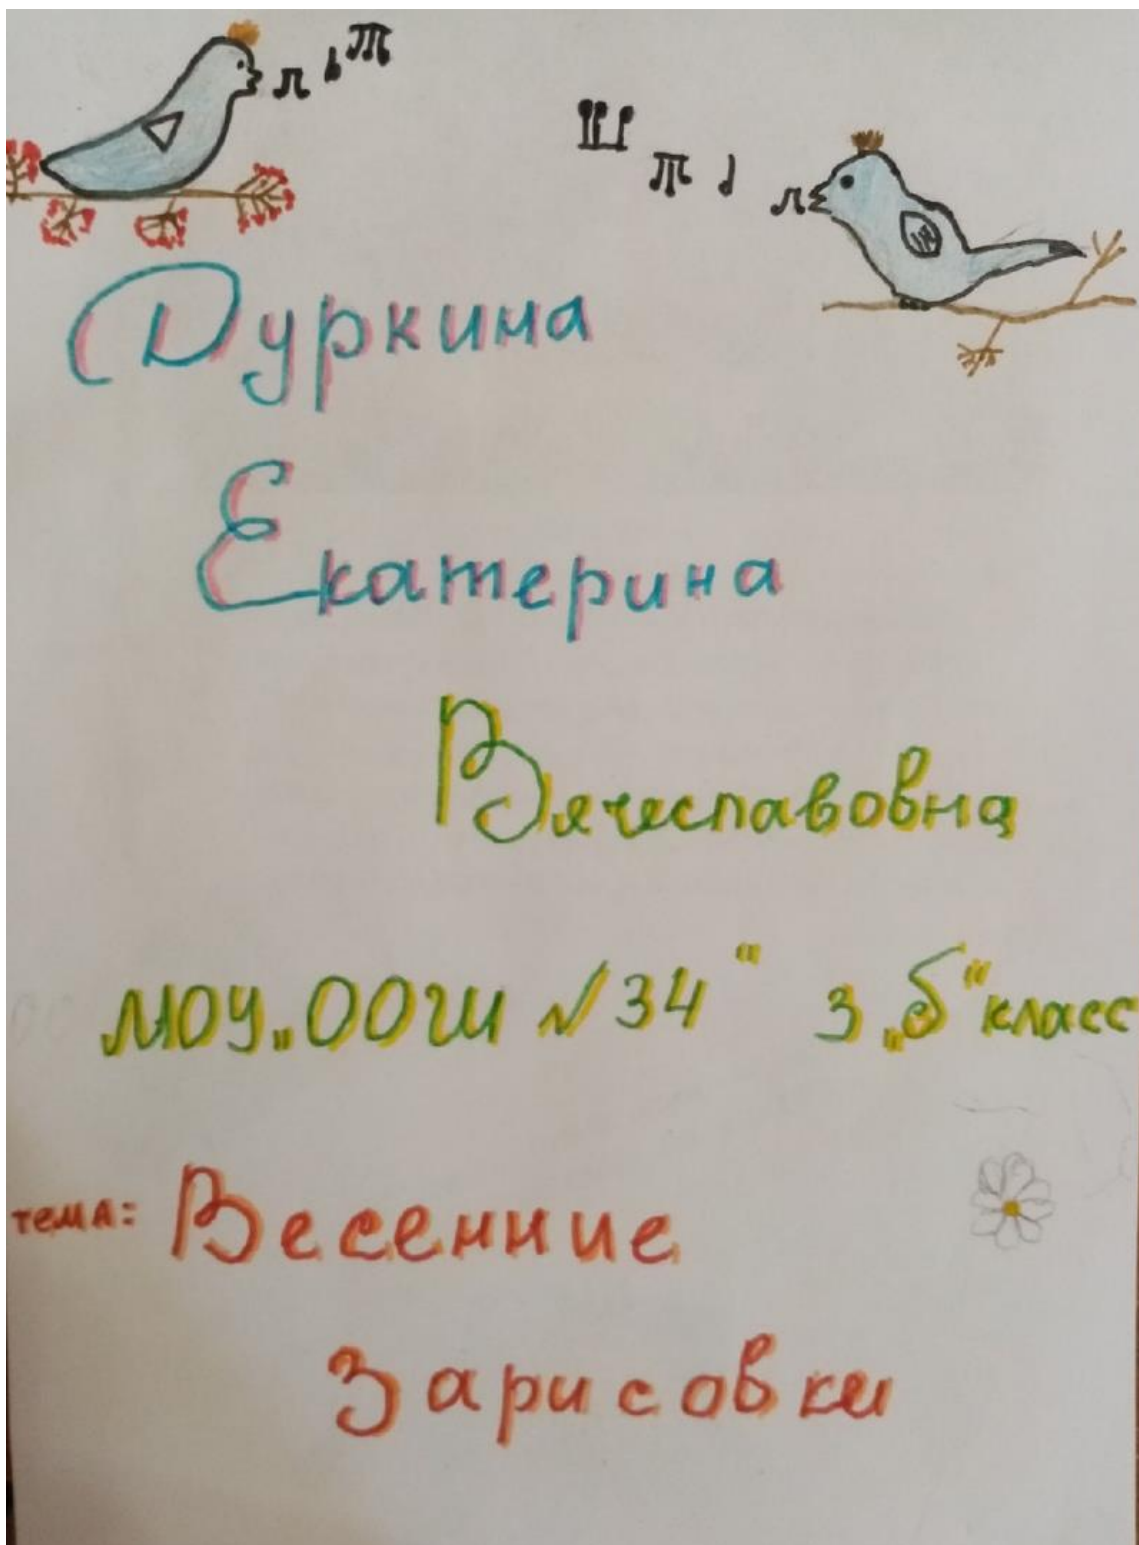 Дуркина
Екатерина
Вячеславовна
МОУ „ООШ №34" 3 „Б" класс
тема: Весенние
Зарисовки